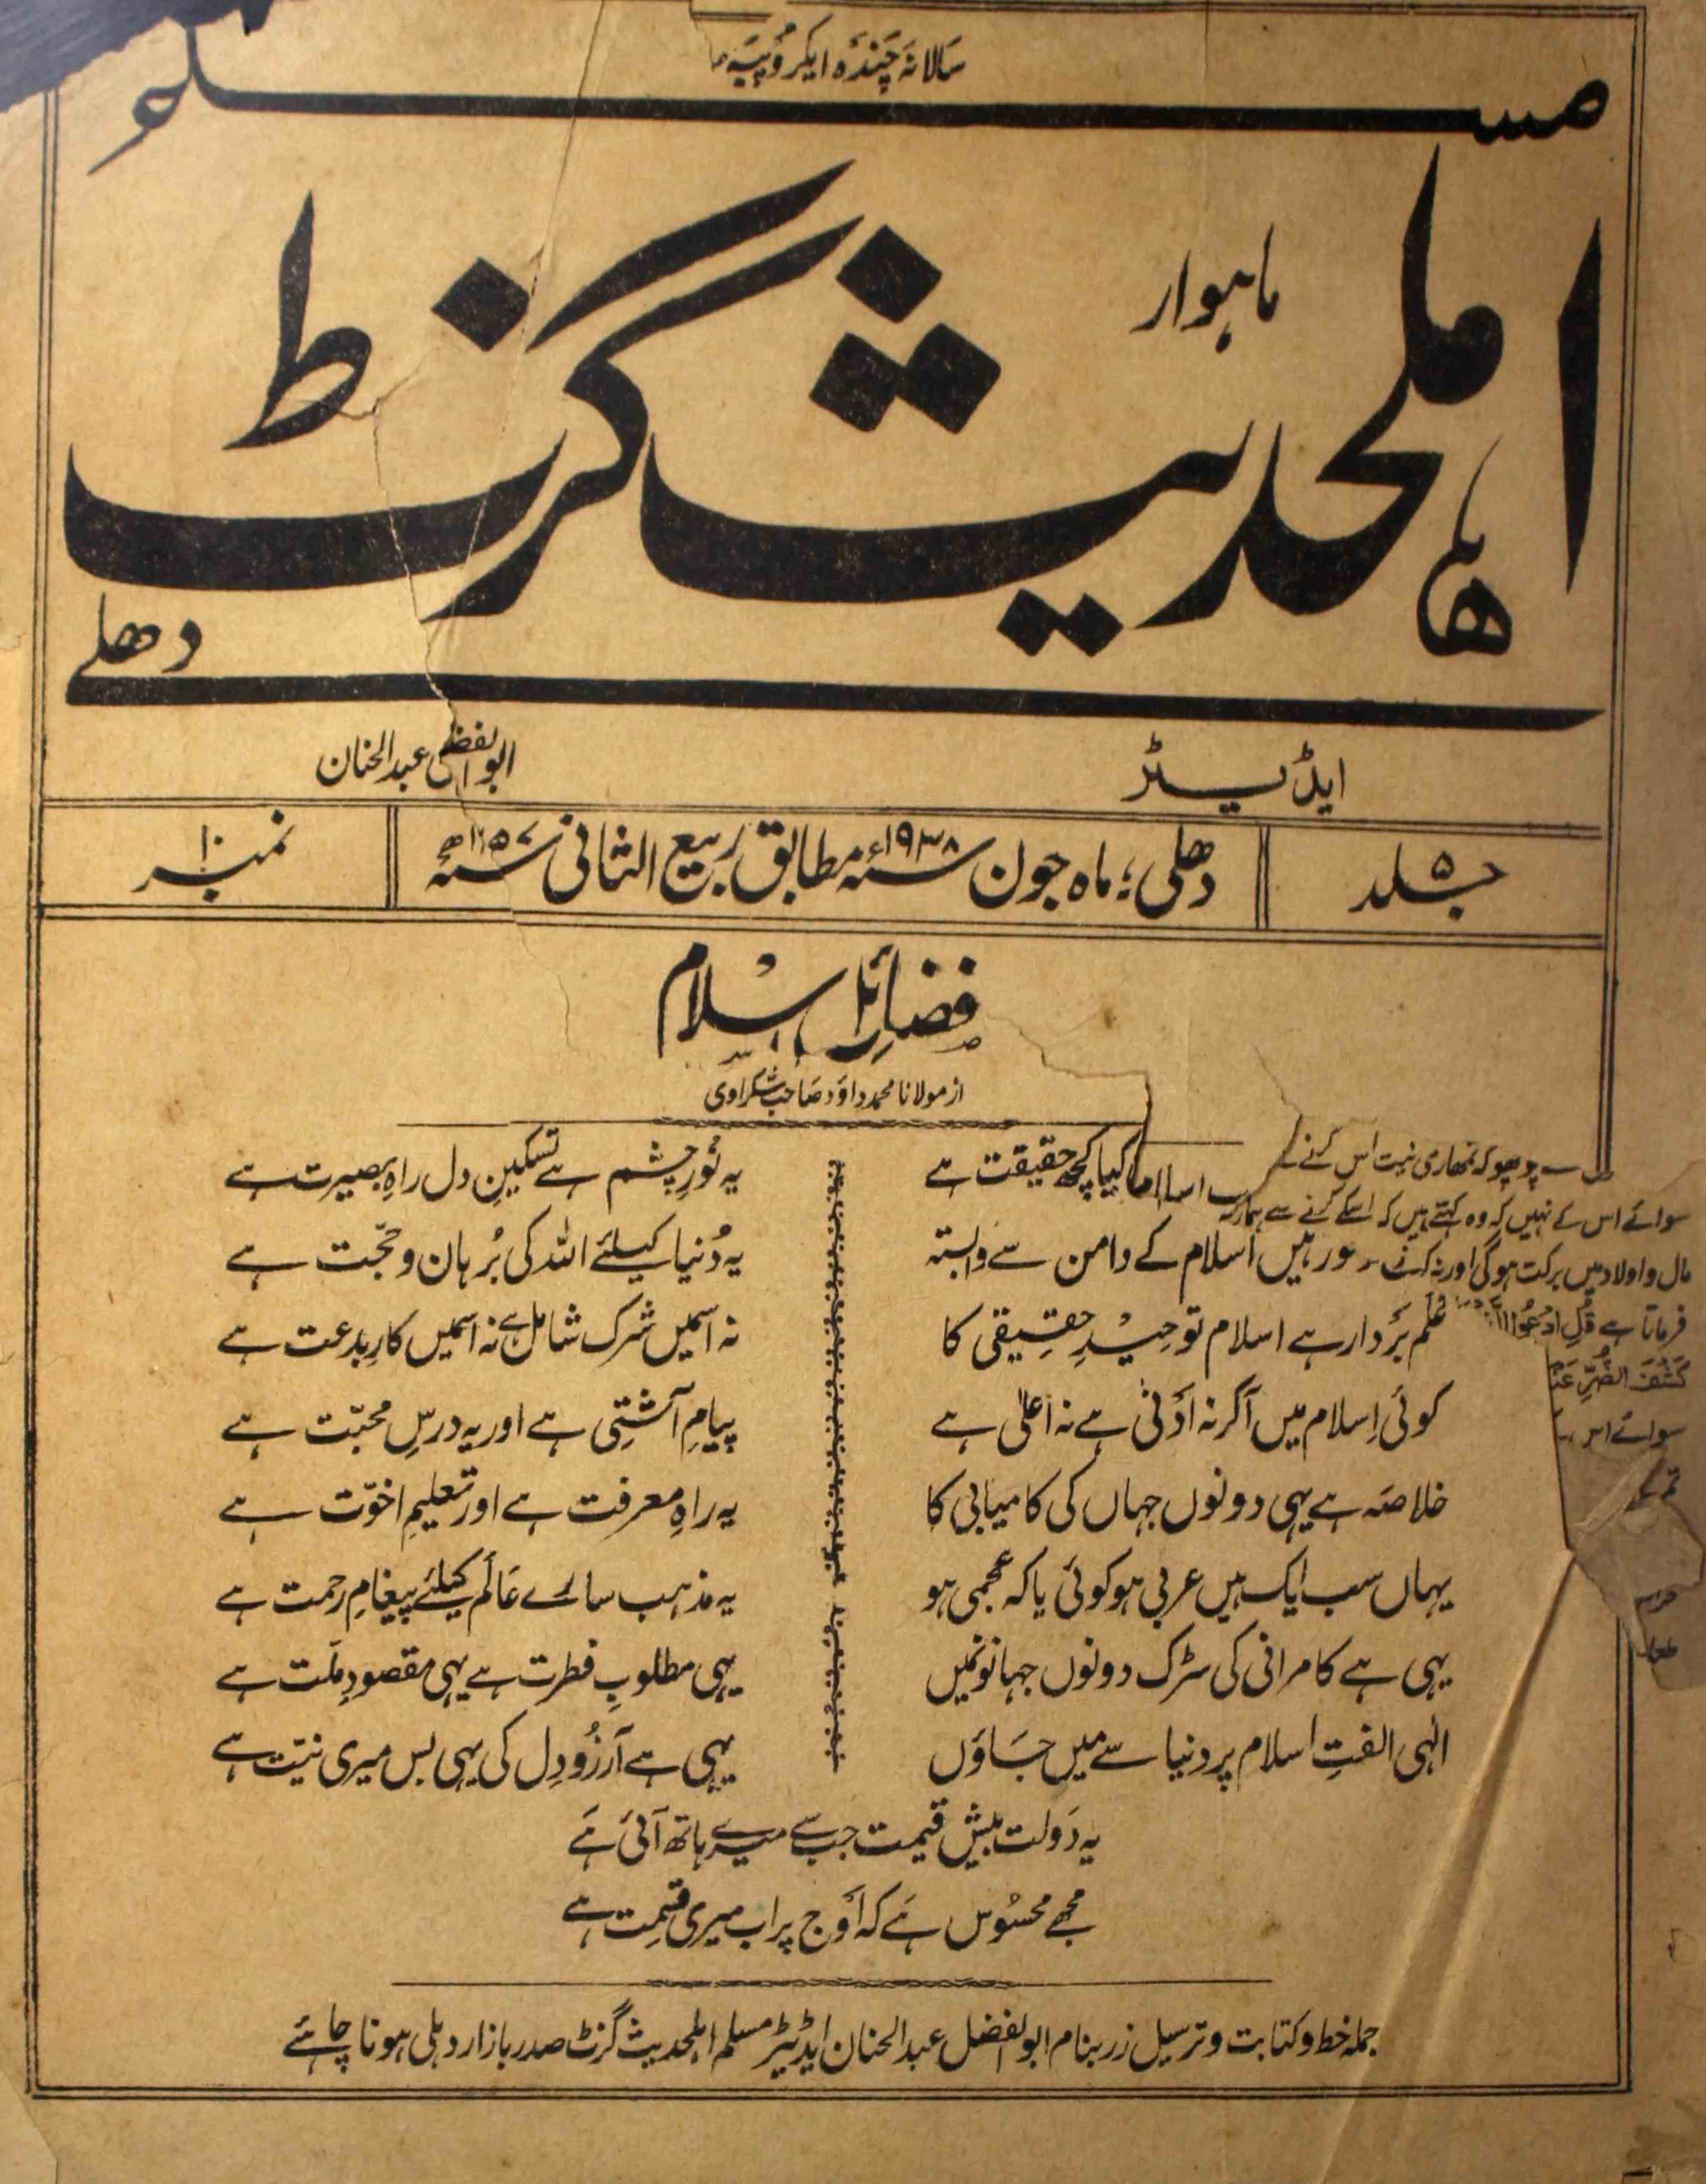 سالانہ چندہ ایکروپیہ
مسلم
ماہوار
اہلحدیث گزٹ
دھلی
ایڈیٹر
ابوالفضل عبدالحنان
جلد ۵
دھلی؛ ماہ جون سنہ ۱۹۳۸ء مطابق ربیع الثانی سنہ ۱۳۵۷ھ
نمبر ۱۰
فضائل اسلام
از مولانا محمد داؤد صاحب شکراوی
کیا کچھ حقیقت ہے
یہ نورِ چشم ہے تسکینِ دل راہِ بصیرت ہے
رہیں اسلام کے دامن سے وابستہ
یہ دُنیا کیلئے اللہ کی بُرہان و حجّت ہے
عَلم بَردار ہے اسلام توحیدِ حقیقی کا
نہ اسمیں شرک شامل ہے نہ اسمیں کارِ بدعت ہے
کوئی اِسلام میں آکر نہ ادنیٰ ہے نہ اعلیٰ ہے
پیامِ آشتِی ہے اور یہ درسِ محبّت ہے
خلاصہ ہے یہی دونوں جہاں کی کامیابی کا
یہ راہِ معرفت ہے اور تعلیمِ اخوّت ہے
یہاں سب ایک ہیں عربی ہو کوئی یا کہ عجمی ہو
یہ مذہب سارے عَالَم کیلئے پیغامِ رحمت ہے
یہی ہے کامرانی کی سڑک دونوں جہانونمیں
یہی مطلوبِ فطرت ہے یہی مقصودِ ملّت ہے
الٰہی الفتِ اسلام پر دنیا سے میں جاؤں
یہی ہے آرزُو دِل کی یہی بس میری نیّت ہے
یہ دَولت بیش قیمت جب سے میرے ہاتھ آئی ہَے
مجھے محسُوس ہَے کہ اَوج پر اب میری قسِمت ہے
جملہ خط و کتابت و ترسیل زر بنام ابوالفضل عبدالحنان ایڈیٹر مسلم اہلحدیث گزٹ صدر بازار دہلی ہونا چاہئے
سے پوچھو کہ تمھاری نیت اس کرنے سے
سوائے اس کے نہیں کہ وہ کہتے ہیں کہ اسکے کرنے سے ہمارے
مال و اولاد میں برکت ہوگی اور نہ کرنے
فرماتا ہے قُلِ ادْعُوا
كَشْفَ الضُّرِّ عَنْ
سوائے اس
تم سے